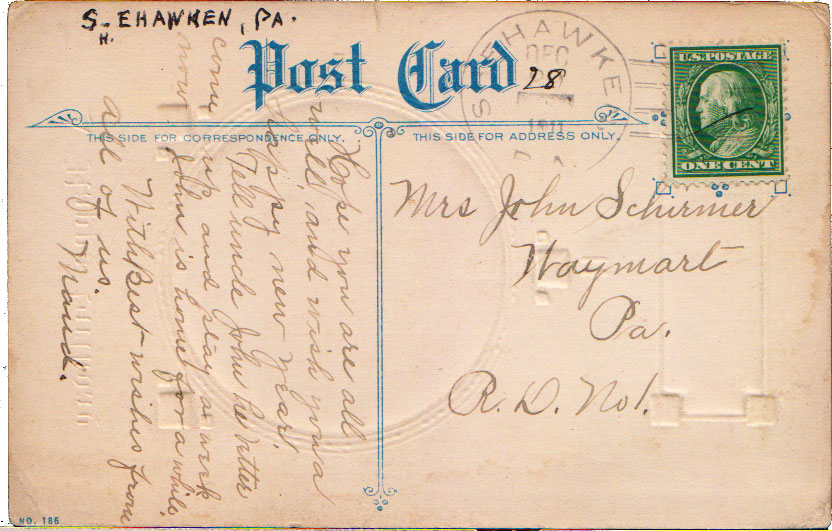 S. EHAWKEN, PA.
H.
Post Card
28
SHEHAWKE
DEC
1911
PA
U.S. POSTAGE
ONE CENT
THIS SIDE FOR CORRESPONDENCE ONLY.
THIS SIDE FOR ADDRESS ONLY.
Hope you are all
well, and wish you a
happy new year.
Tell uncle John he better
come up and stay a week
John is home for a while
now
With Best wishes from
all of us.
Maud.
Mrs John Schirmer
Waymart
Pa.
R. D. No 1.
NO. 186